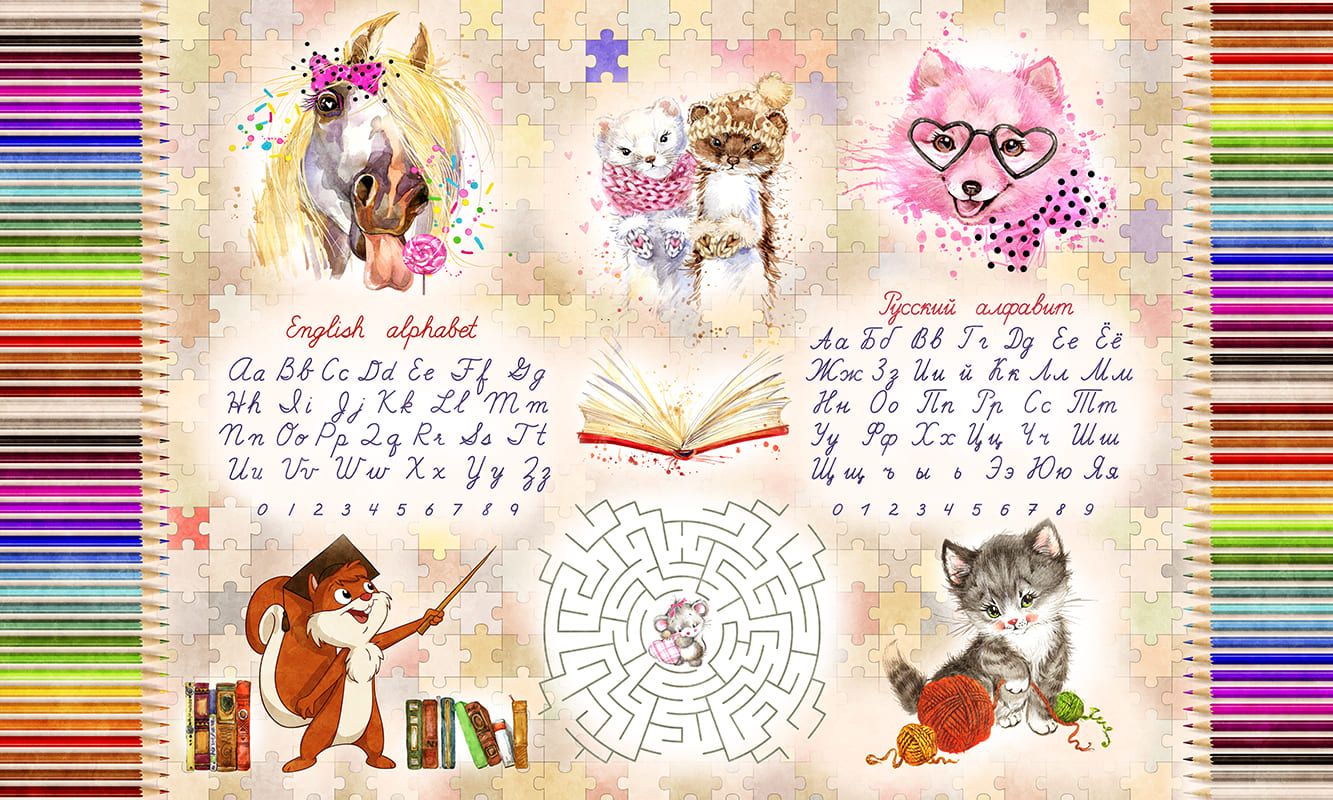 English alphabet
Aa Bb Cc Dd Ee Ff Gg
Hh Ii Jj Kk Ll Mm
Nn Oo Pp Qq Rr Ss Tt
Uu Vv Ww Xx Yy Zz
0 1 2 3 4 5 6 7 8 9
Русский алфавит
Аа Бб Вв Гг Дд Ее Ёё
Жж Зз Ии й Кк Лл Мм
Нн Оо Пп Рр Сс Тт
Уу Фф Хх Цц Чч Шш
Щщ ъ ы ь Ээ Юю Яя
0 1 2 3 4 5 6 7 8 9